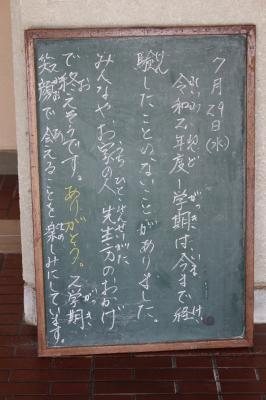 7月29日(水)
令和2年度1学期は、今まで経
験したことのないことがありました。
みんなや、お家の人、先生方のおかげ
で終えそうです。ありがとう。2学期
笑顔で会えることを楽しみにしています。